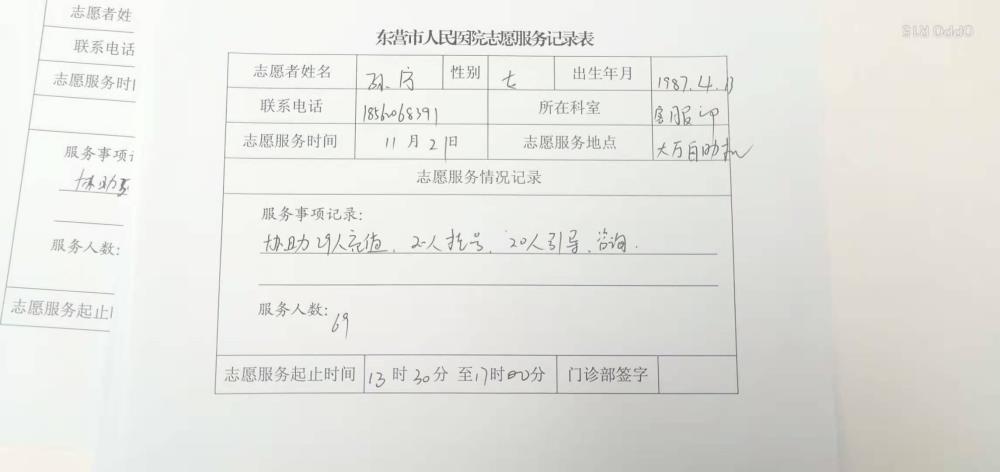 志愿者姓
联系电话
志愿服务时
服务事项
协助
服务人数:
志愿服务起止
OPPO R15
东营市人民医院志愿服务记录表
志愿者姓名 孙 性别 女 出生年月 1987.4.13
联系电话 1856068391 所在科室 客服部
志愿服务时间 11月2日 志愿服务地点 大厅自助机
志愿服务情况记录
服务事项记录:
协助29人充值、2人挂号、20人引导、咨询.
服务人数: 69
志愿服务起止时间 13时30分 至17时00分 门诊部签字